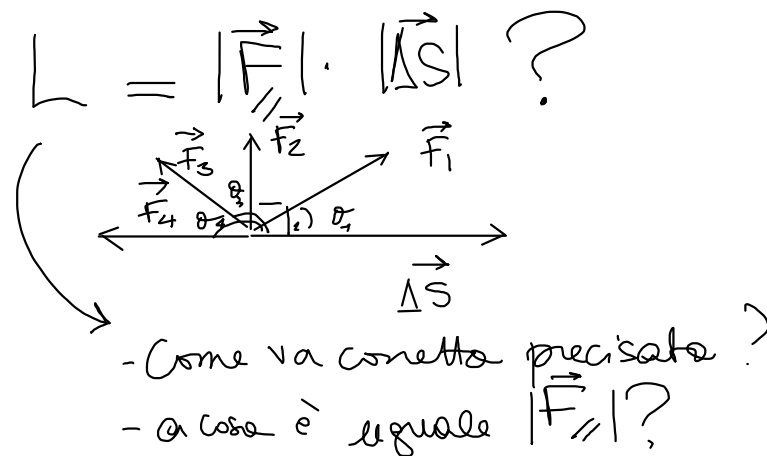 L = |F⃗∥| · |Δ⃗S| ?
F⃗3 F⃗2 F⃗1
F⃗4 θ4 θ3 θ2 θ1
Δ⃗S
- Come va corretta precisata ?
- a cosa è uguale |F⃗∥| ?